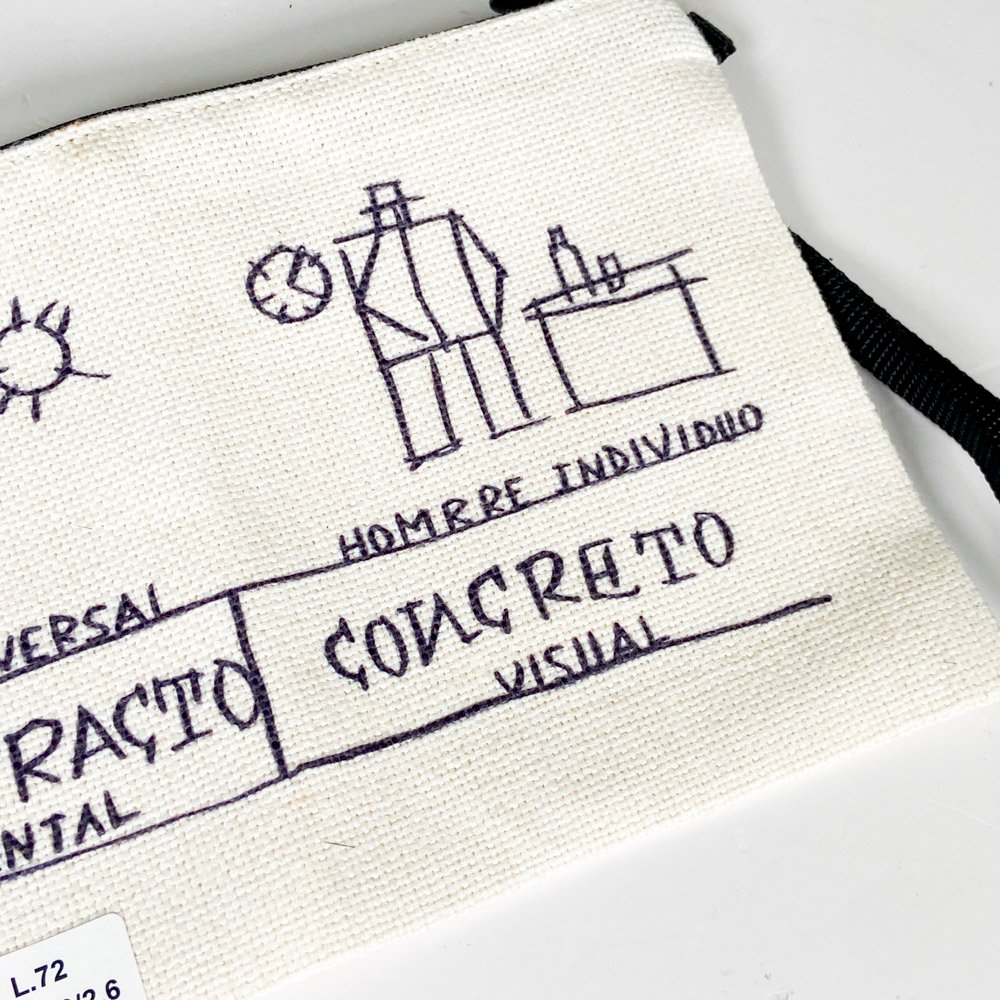 HOMBRE INDIVIDUO
VERSAL
RACTO CONCRETO
VISUAL
NTAL
L.72
/2.6